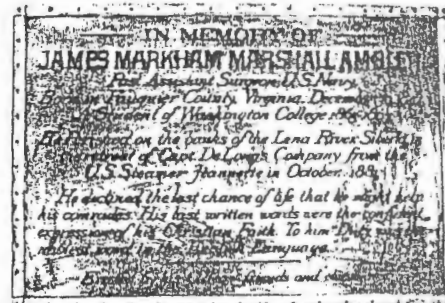 IN MEMORY OF
JAMES MARKHAM MARSHALL AMBLER
Past Assistant Surgeon U.S. Navy
Born in Fauquier County, Virginia, December
Student of Washington College
He perished on the banks of the Lena River Siberia
retreat of Capt. De Long's Company from the
U.S. Steamer Jeannette in October, 1881
He declined the last chance of life that he might help
his comrades. His last written words were the confident
expression of his Christian Faith. To him Duty was the
noblest word in the English Language.
friends and